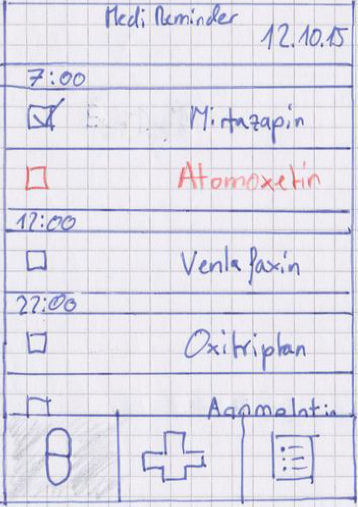 Medi Reminder
12.10.15
7:00
Mirtazapin
Atomoxetin
12:00
Venlafaxin
22:00
Oxitriptan